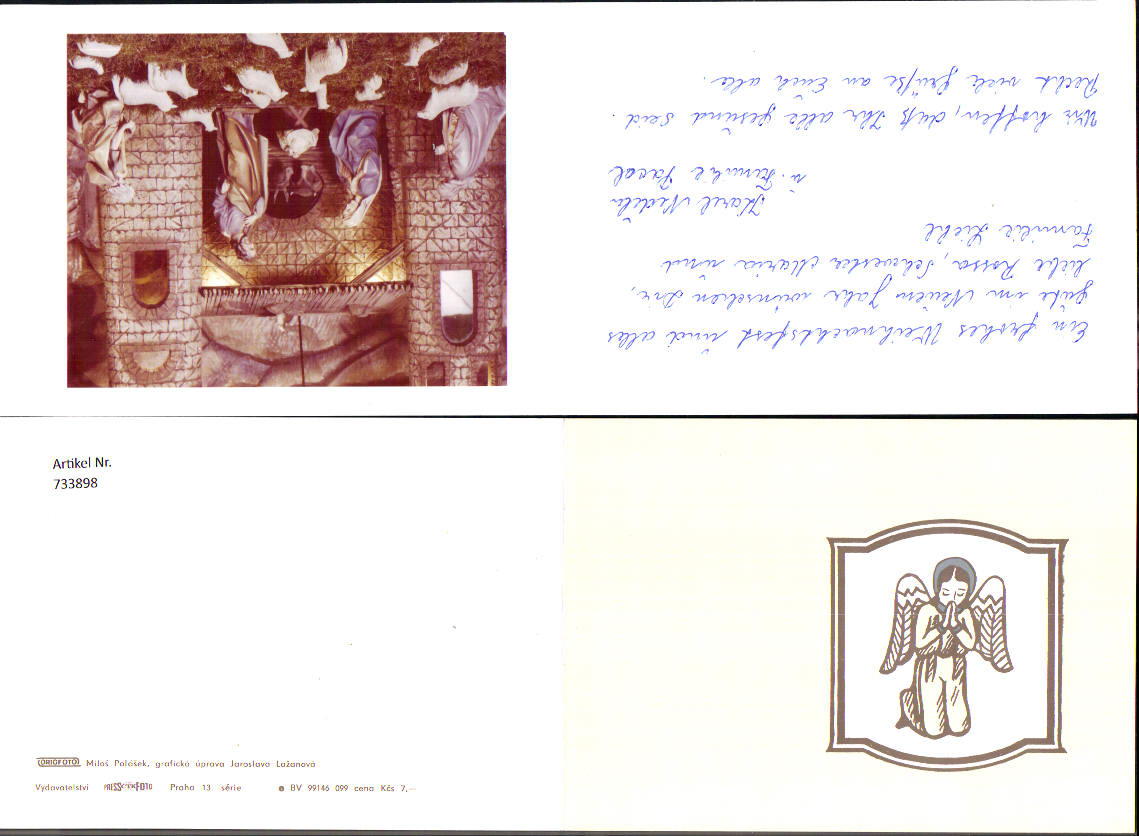 Ein frohes Weihnachtsfest und alles
Gute im Neuen Jahr wünschen Dir,
liebe Rossa, Schwester Maria und
Familie
Karel
u. Familie
Wir hoffen, daß Ihr alle gesund seid.
Recht viele Grüße an Euch alle.
Artikel Nr.
733898
ORIGFOTO Miloš Polášek, grafická úprava Jaroslava Lažanová
Vydavatelství PRESSFOTO Praha 13. série ● BV 99146 099 cena Kčs 7,—